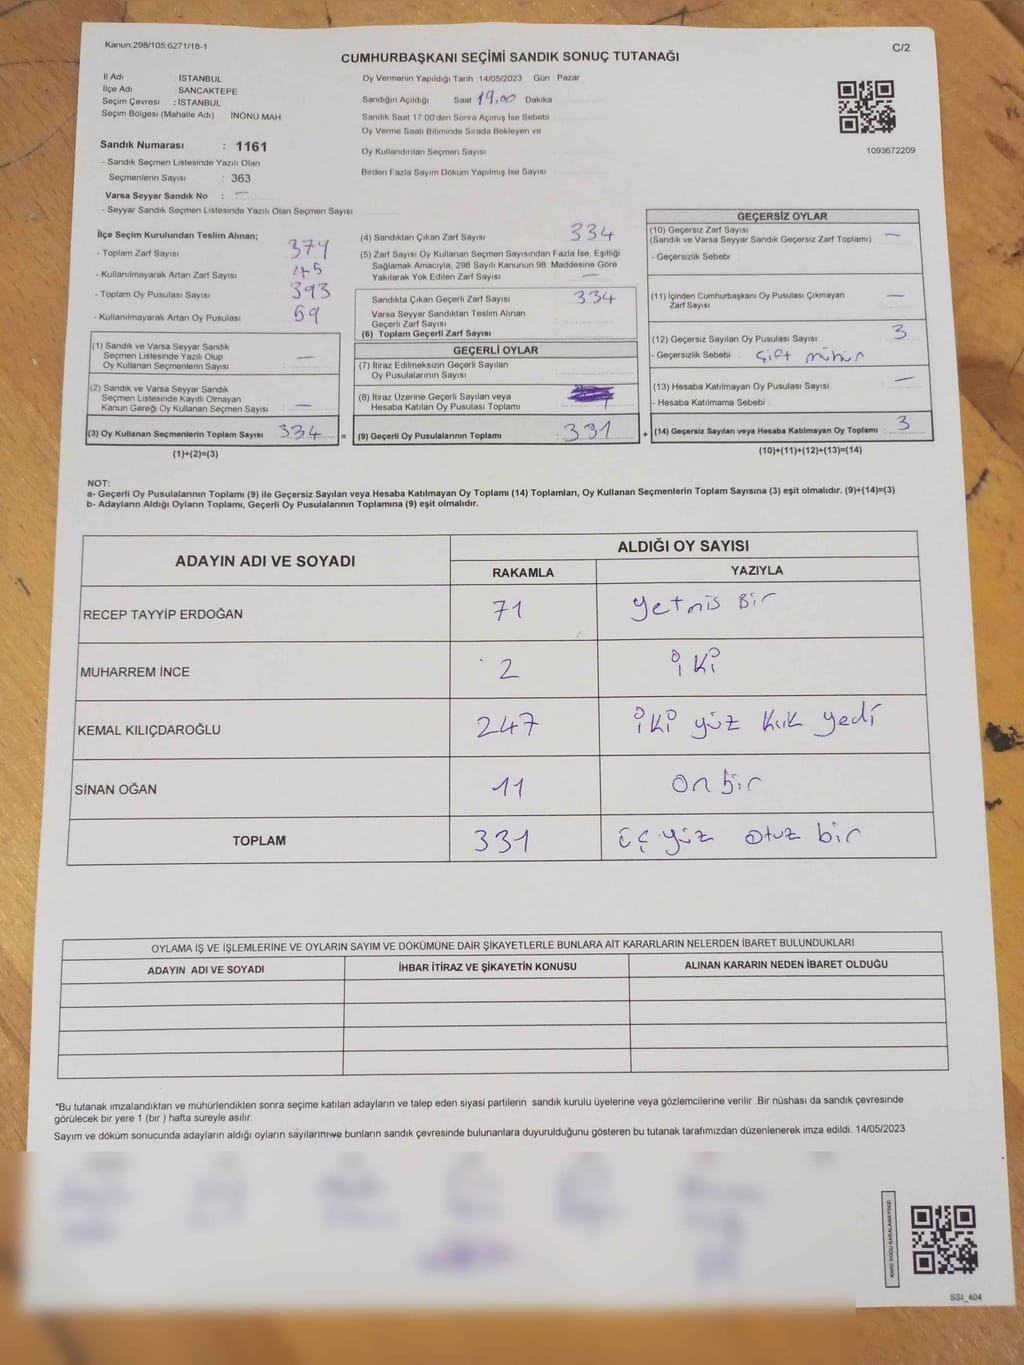 Kanun:298/105;6271/16-1
C/2
CUMHURBAŞKANI SEÇİMİ SANDIK SONUÇ TUTANAĞI
İl Adı İSTANBUL
İlçe Adı SANCAKTEPE
Seçim Çevresi : İSTANBUL
Seçim Bölgesi (Mahalle Adı) : İNÖNÜ MAH
Sandık Numarası : 1161
- Sandık Seçmen Listesinde Yazılı Olan
Seçmenlerin Sayısı : 363
Varsa Seyyar Sandık No : —
- Seyyar Sandık Seçmen Listesinde Yazılı Olan Seçmen Sayısı
Oy Vermenin Yapıldığı Tarih 14/05/2023 Gün : Pazar
Sandığın Açıldığı Saat 19.00 Dakika
Sandık Saat 17:00'den Sonra Açımış İse Sebebi
Oy Verme Saati Bitiminde Sırada Bekleyen ve
Oy Kullandırılan Seçmen Sayısı
Birden Fazla Sayım Döküm Yapılmış İse Sayısı
1093672209
İlçe Seçim Kurulundan Teslim Alınan;
- Toplam Zarf Sayısı 379
- Kullanılmayarak Artan Zarf Sayısı 45
- Toplam Oy Pusulası Sayısı 393
- Kullanılmayarak Artan Oy Pusulası 59
(1) Sandık ve Varsa Seyyar Sandık
Seçmen Listesinde Yazılı Olup
Oy Kullanan Seçmenlerin Sayısı —
(2) Sandık ve Varsa Seyyar Sandık
Seçmen Listesinde Kayıtlı Olmayan
Kanun Gereği Oy Kullanan Seçmen Sayısı —
(3) Oy Kullanan Seçmenlerin Toplam Sayısı 334 =
(1)+(2)=(3)
(4) Sandıktan Çıkan Zarf Sayısı 334
(5) Zarf Sayısı Oy Kullanan Seçmen Sayısından Fazla İse, Eşitliği
Sağlamak Amacıyla, 298 Sayılı Kanunun 98. Maddesine Göre
Yakılarak Yok Edilen Zarf Sayısı —
Sandıkta Çıkan Geçerli Zarf Sayısı 334
Varsa Seyyar Sandıktan Teslim Alınan
Geçerli Zarf Sayısı
(6) Toplam Geçerli Zarf Sayısı
GEÇERLİ OYLAR
(7) İtiraz Edilmeksizin Geçerli Sayılan
Oy Pusulalarının Sayısı
(8) İtiraz Üzerine Geçerli Sayılan veya
Hesaba Katılan Oy Pusulası Toplamı
(9) Geçerli Oy Pusulalarının Toplamı 331 +
GEÇERSİZ OYLAR
(10) Geçersiz Zarf Sayısı —
(Sandık ve Varsa Seyyar Sandık Geçersiz Zarf Toplamı)
- Geçersizlik Sebebi
(11) İçinden Cumhurbaşkanı Oy Pusulası Çıkmayan —
Zarf Sayısı
(12) Geçersiz Sayılan Oy Pusulası Sayısı 3
- Geçersizlik Sebebi : Çift mühür
(13) Hesaba Katılmayan Oy Pusulası Sayısı —
- Hesaba Katılmama Sebebi
(14) Geçersiz Sayılan veya Hesaba Katılmayan Oy Toplamı 3
(10)+(11)+(12)+(13)=(14)
NOT:
a- Geçerli Oy Pusulalarının Toplamı (9) ile Geçersiz Sayılan veya Hesaba Katılmayan Oy Toplamı (14) Toplamları, Oy Kullanan Seçmenlerin Toplam Sayısına (3) eşit olmalıdır. (9)+(14)=(3)
b- Adayların Aldığı Oyların Toplamı, Geçerli Oy Pusulalarının Toplamına (9) eşit olmalıdır.
ADAYIN ADI VE SOYADI ALDIĞI OY SAYISI
RAKAMLA YAZIYLA
RECEP TAYYİP ERDOĞAN 71 yetmiş Bir
MUHARREM İNCE 2 iki
KEMAL KILIÇDAROĞLU 247 iki yüz kırk yedi
SİNAN OĞAN 11 on bir
TOPLAM 331 üç yüz otuz bir
OYLAMA İŞ VE İŞLEMLERİNE VE OYLARIN SAYIM VE DÖKÜMÜNE DAİR ŞİKAYETLERLE BUNLARA AİT KARARLARIN NELERDEN İBARET BULUNDUKLARI
ADAYIN ADI VE SOYADI İHBAR İTİRAZ VE ŞİKAYETİN KONUSU ALINAN KARARIN NEDEN İBARET OLDUĞU
*Bu tutanak imzalandıktan ve mühürlendikten sonra seçime katılan adayların ve talep eden siyasi partilerin sandık kurulu üyelerine veya gözlemcilerine verilir. Bir nüshası da sandık çevresinde
görülecek bir yere 1 (bir) hafta süreyle asılır.
Sayım ve döküm sonucunda adayların aldığı oyların sayılarını ve bunların sandık çevresinde bulunanlara duyurulduğunu gösteren bu tutanak tarafımızdan düzenlenerek imza edildi. 14/05/2023
KARE KODU KARALAMAYINIZ!
SSI_404